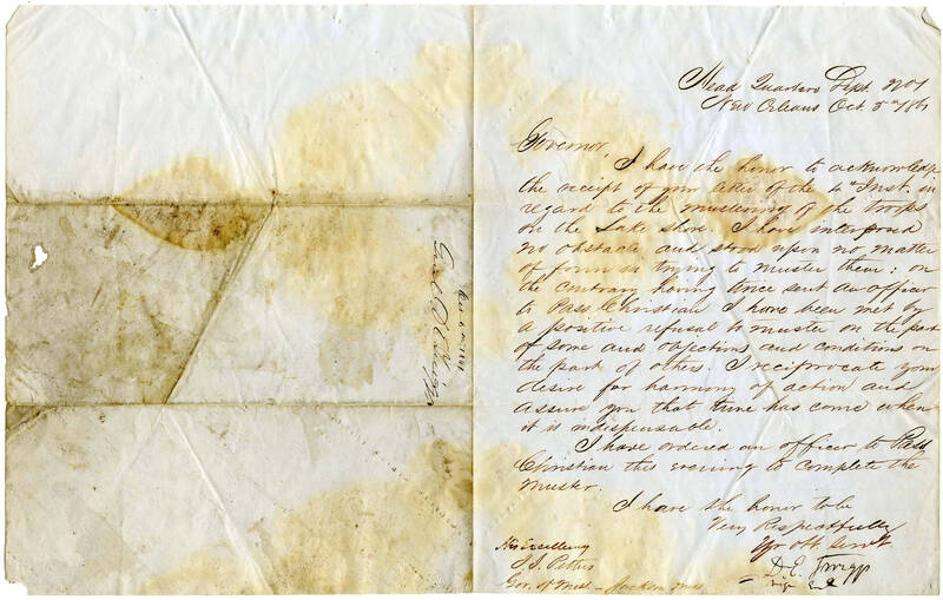 Head Quarters Dept. No 1
New Orleans Oct. 5th 1861
Governor,
I have the honor to acknowledge
the receipt of your letter of the 4th Inst. in
regard to the mustering of the troops
on the Lake shore. I have interposed
no obstacle and stood upon no matter
of form in trying to muster them: on
the contrary having once sent an officer
to Pass Christian I have been met by
a positive refusal to muster on the part
of some and objections and conditions on
the part of others. I reciprocate your
desire for harmony of action and
assure you that time has come when
it is indispensable.
I have ordered an officer to Pass
Christian this evening to complete the
muster.
I have the honor to be
Very Respectfully
Yr obt. Servt
D. E. Twiggs
His Excellency
J. J. Pettus
Gov. of Miss - Jackson Miss
Genl D E Twiggs
1861